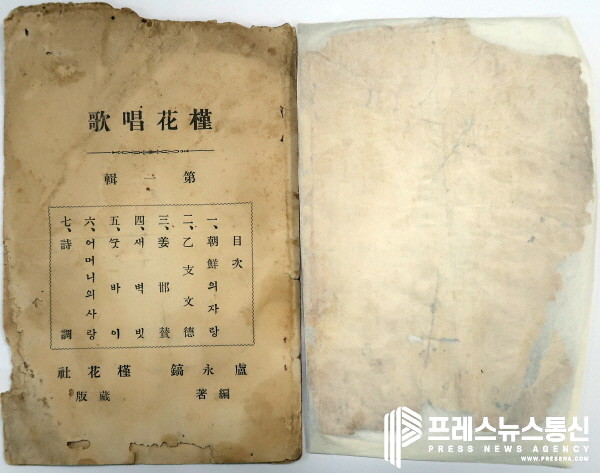 槿花唱歌
第一輯
目次
一、朝鮮의자랑
二、乙支文德
三、姜邯賛
四、새벽빗
五、
六、어머니의사랑
七、詩調
盧永鎬 編著
槿花社 藏版
프레스뉴스통신
PRESS NEWS AGENCY
WWW.PRESENA.COM